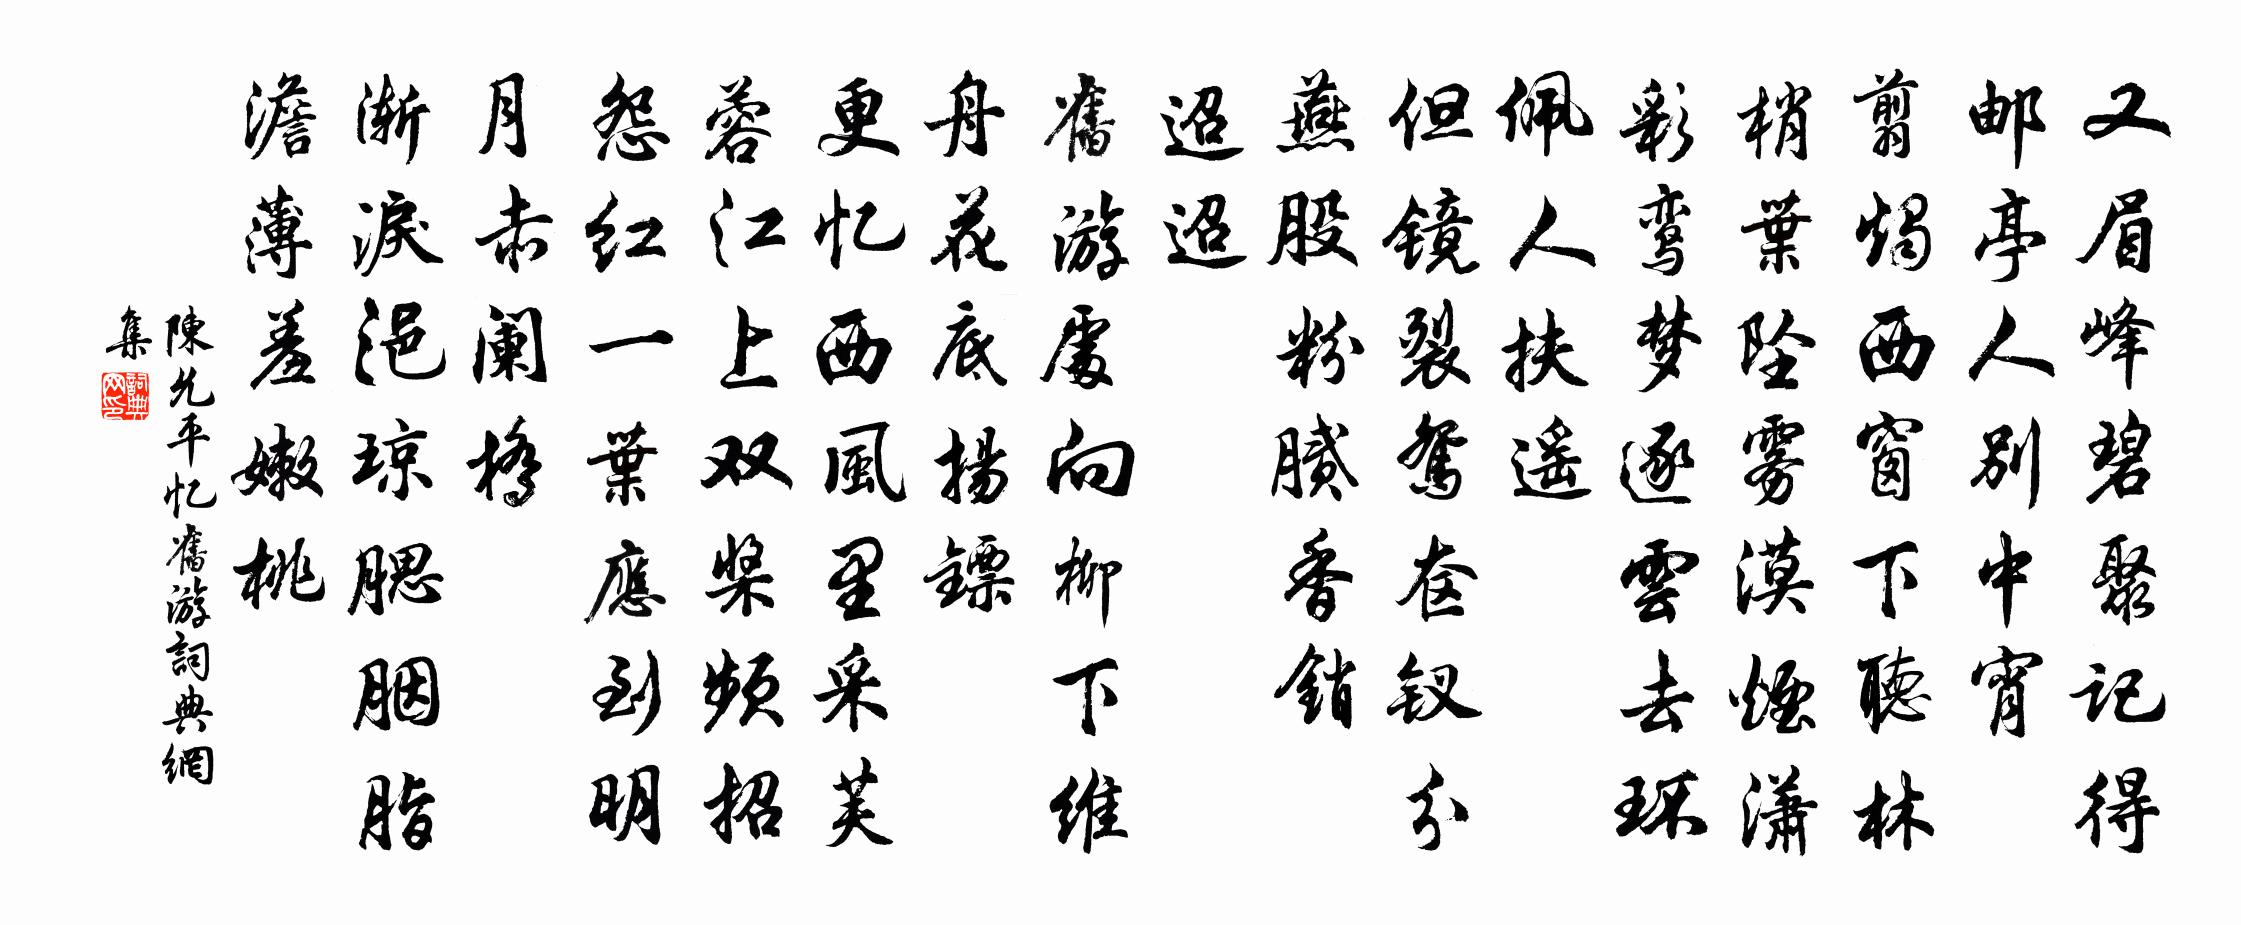 又眉峰碧聚记得
邮亭人别中宵
剪燭西窗下聽林
梢葉坠雾漠煙潇
彩鸾梦逐雲去环
佩人扶遥
但镜裂鸳奁钗分
燕股粉腻香銷
迢迢
舊游處向柳下维
舟花底揚鑣
更忆西風里采芙
蓉江上双槳频招
怨红一葉應到明
月赤阑橋
渐淚浥琼腮胭脂
澹薄羞嫩桃
陳允平忆舊游詞典網
集
詞典网印